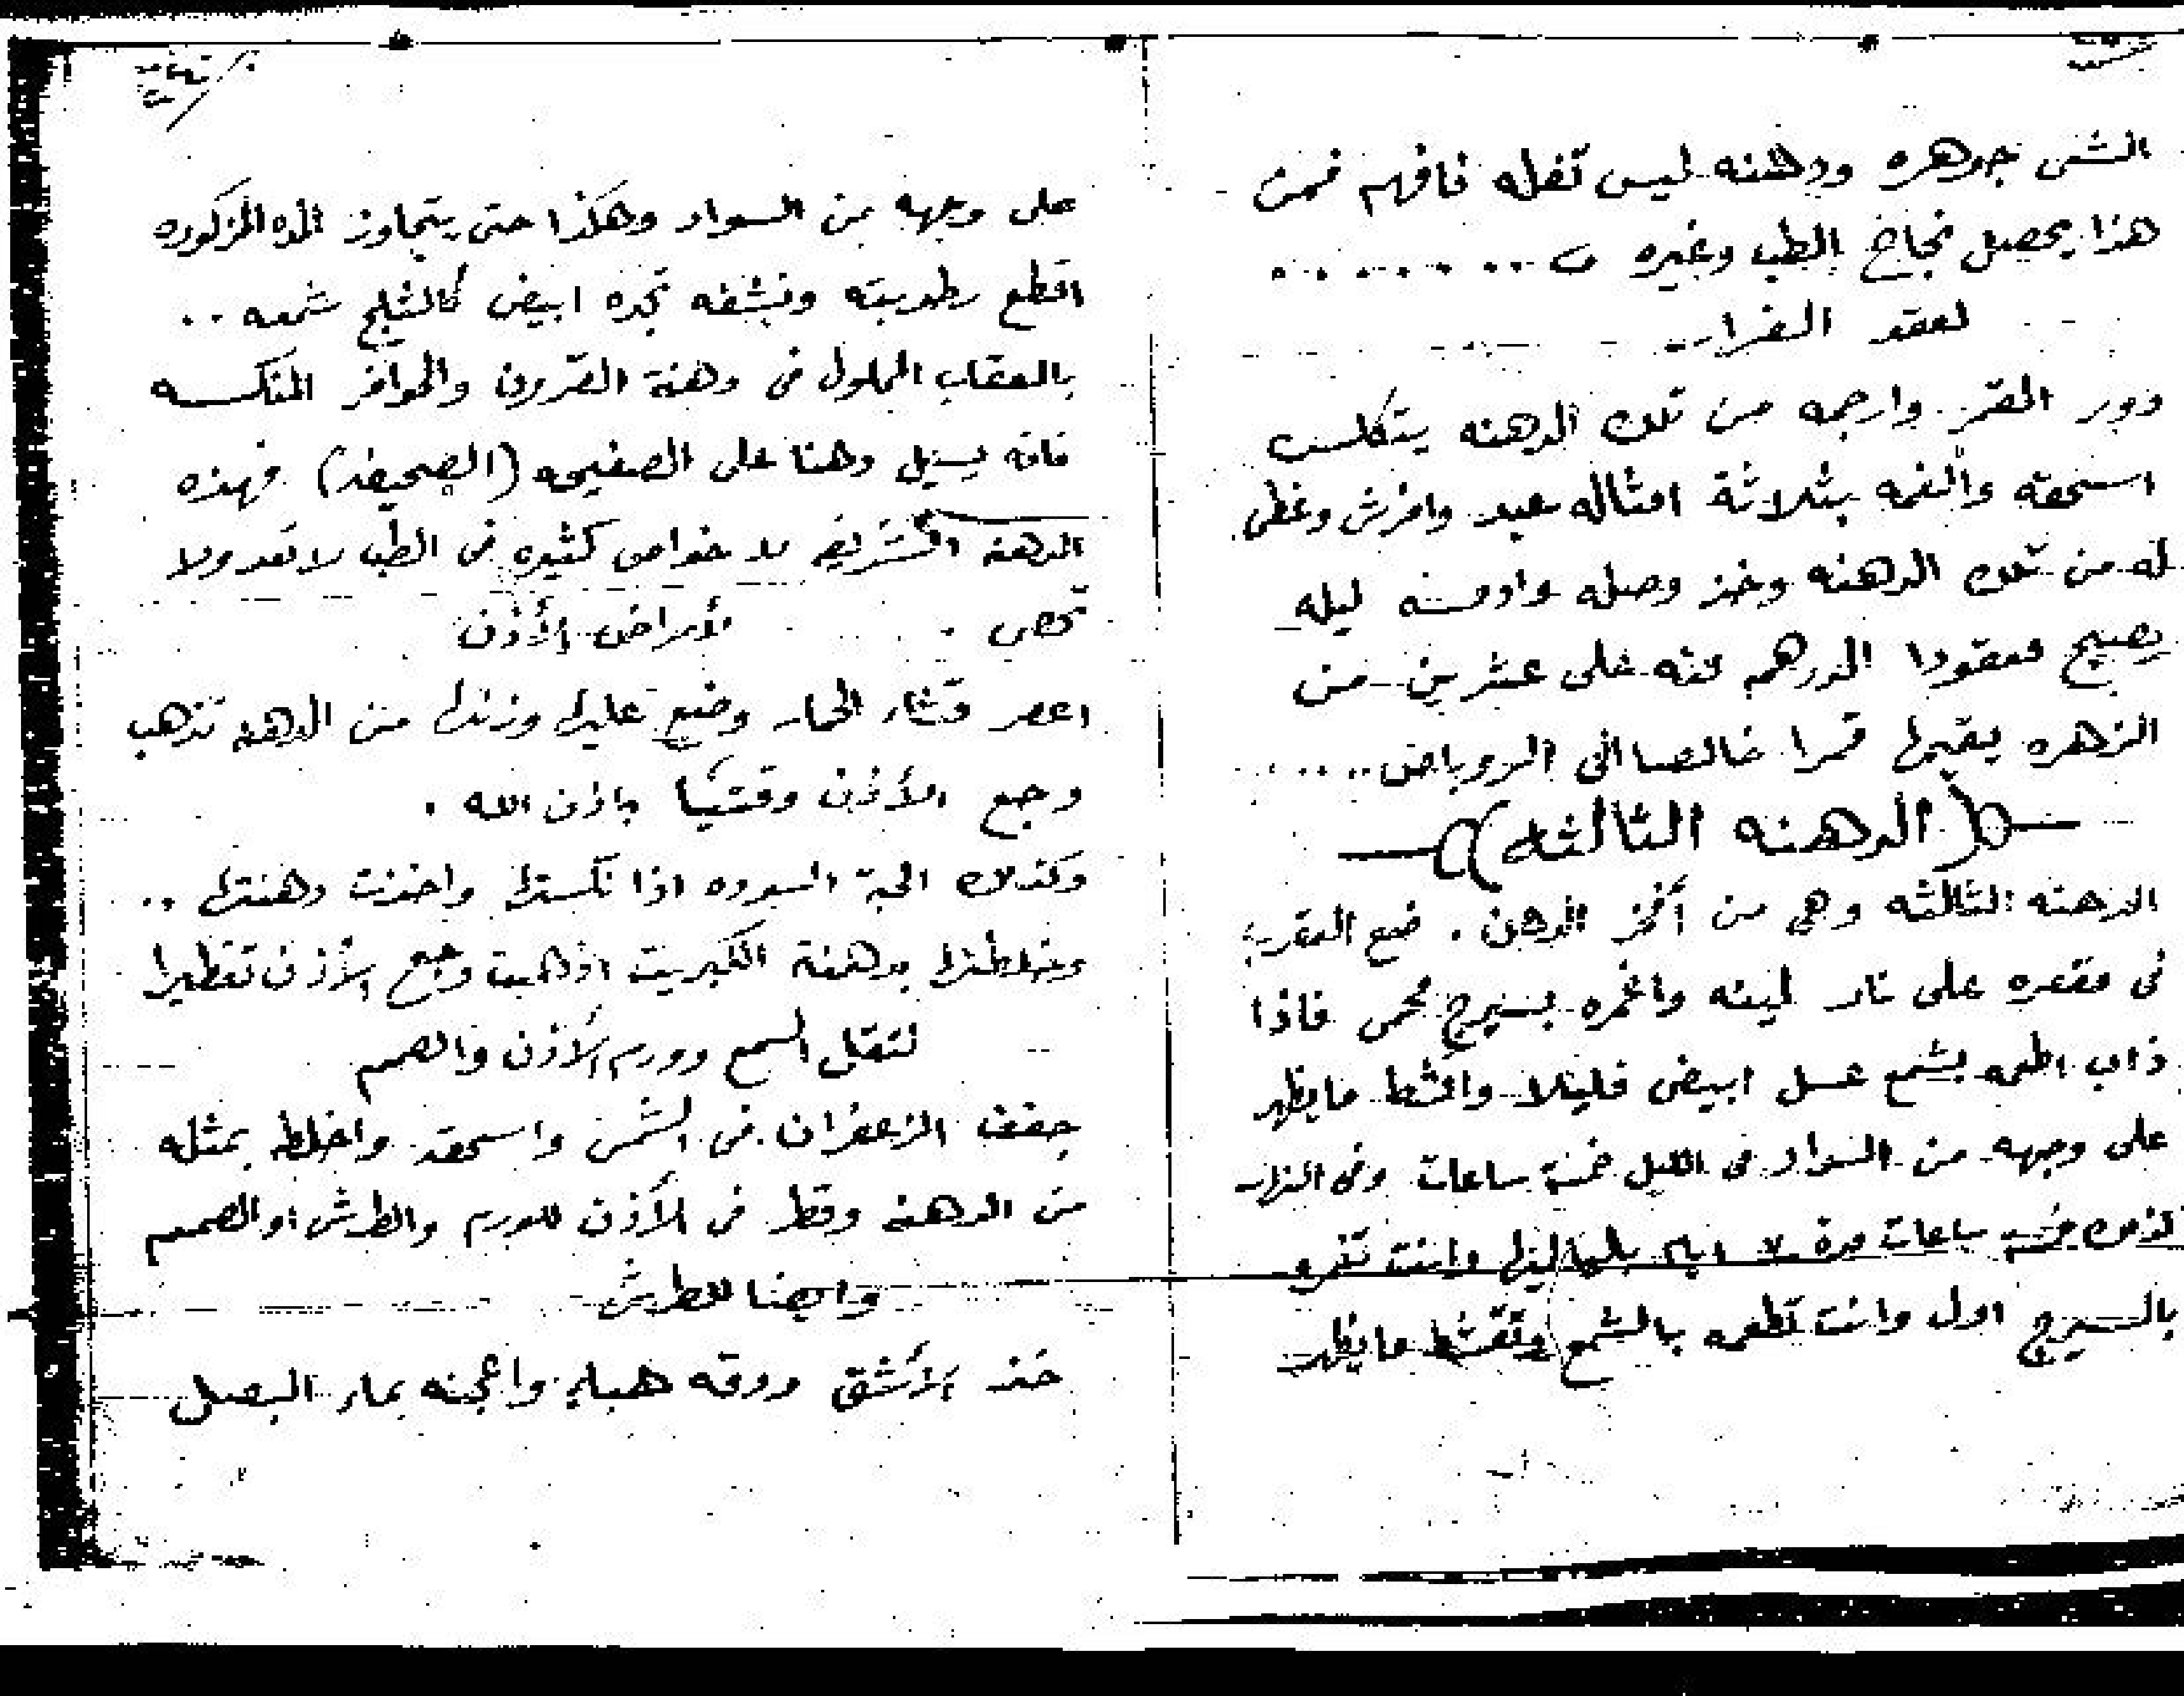 الشى جوهره ودهنه ليس تفله فافهم فمن
هذا يحصل نجاح الطب وغيره
لعقد الفرار
دور القمر وارجمه من تلك الدهنه يتكلس
اسحقه والغمه بثلاثة امثاله عبد وافرش وغطى
له من تلك الدهنه وخذ وصله وادمسه ليله
يصبح معقودا الدرهم منه على عشرين من
الزهره يقيمها قمرا خالصا الى الروباص ....
(الدهنه الثالثه)
الدهنه الثالثه وهي من أفخر الدهن . ضع العقرب
فى مقعره على نار لينه واغمره بسيرج محمى فاذا
ذاب اطعمه بشمع عسل ابيض قليلا واقشط ما يظهر
على وجهه من السواد فى الليل خمسة ساعات وفى النهار
كذلك خمسة ساعات مدة ٧ ايام بلياليها وانت تغمره
بالسيرج اول وانت تطعمه بالشمع وتقشط ما يظهر
على وجهه من السواد وهكذا حتى يتجاوز المده المذكوره
اقطع رطوبته ونشفه تجده ابيض كالثلج شمعه ..
بالعقاب المحلول فى دهنة القرون والحوافر المنكسه
فانه يسيل دهنا على الصفيحه (الصحيفه) فهذه
الدهنه الشريفه لها خواص كثيره فى الطب لا تعد ولا
تحصى . لأمراض الأذن
اعصر قثاء الحمار وضع عليها وزنها من الدهنه تذهب
وجع الأذن وقتيا باذن الله .
وكذلك الحبة السوده اذا نكستها واخذت دهنتها ..
وخلطتها بدهنة الكبريت اذهبت وجع الأذن تقطيرا
لثقل السمع وورم الأذن والصمم
جفف الزعفران فى الشمس واسحقه واخلطه بمثله
من الدهنه وقطر فى الأذن للورم والطرش او الصمم
وايضا للطرش
خذ الأشق ودقه هباء واعجنه بماء البصل